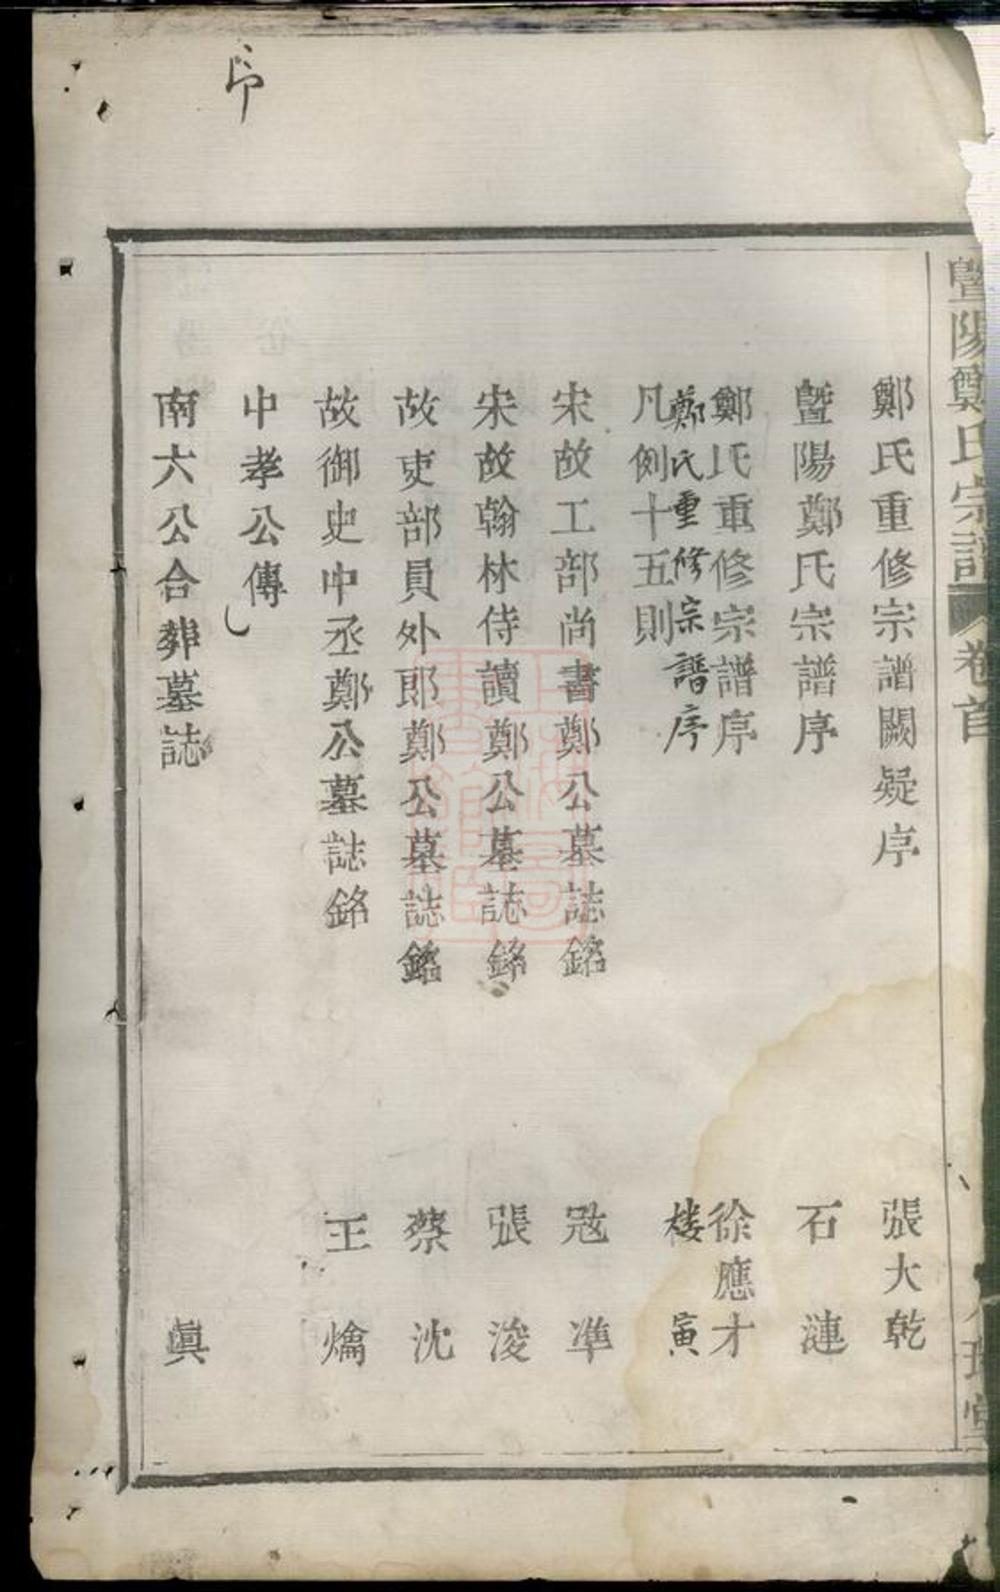 暨陽鄭氏宗譜 卷首
鄭氏重修宗譜闕疑序 張大乾
暨陽鄭氏宗譜序 石漣
鄭氏重修宗譜序 徐應才
鄭氏重修宗譜序 楼寅
凡例十五則
宋故工部尚書鄭公墓誌銘 冦凖
宋故翰林侍讀鄭公墓誌銘 張浚
故吏部員外郎鄭公墓誌銘 蔡沈
故御史中丞鄭公墓誌銘 王爚
中孝公傳
南六公合葬墓誌 眞